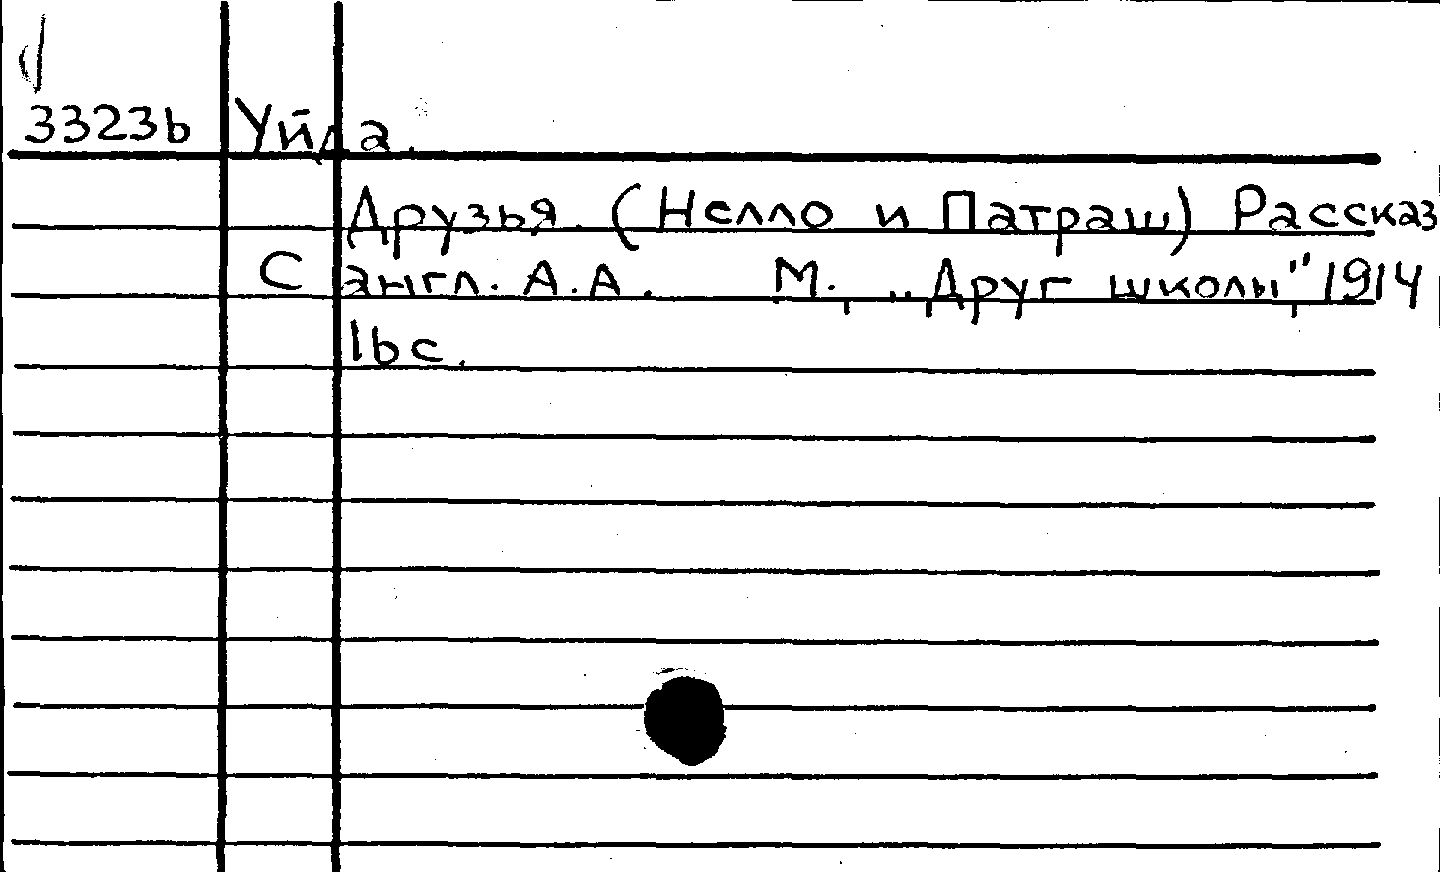 33236 Уйда.
Друзья. (Нелло и Патраш) Рассказ
С англ. А.А. М., „Друг школы", 1914
16 с.